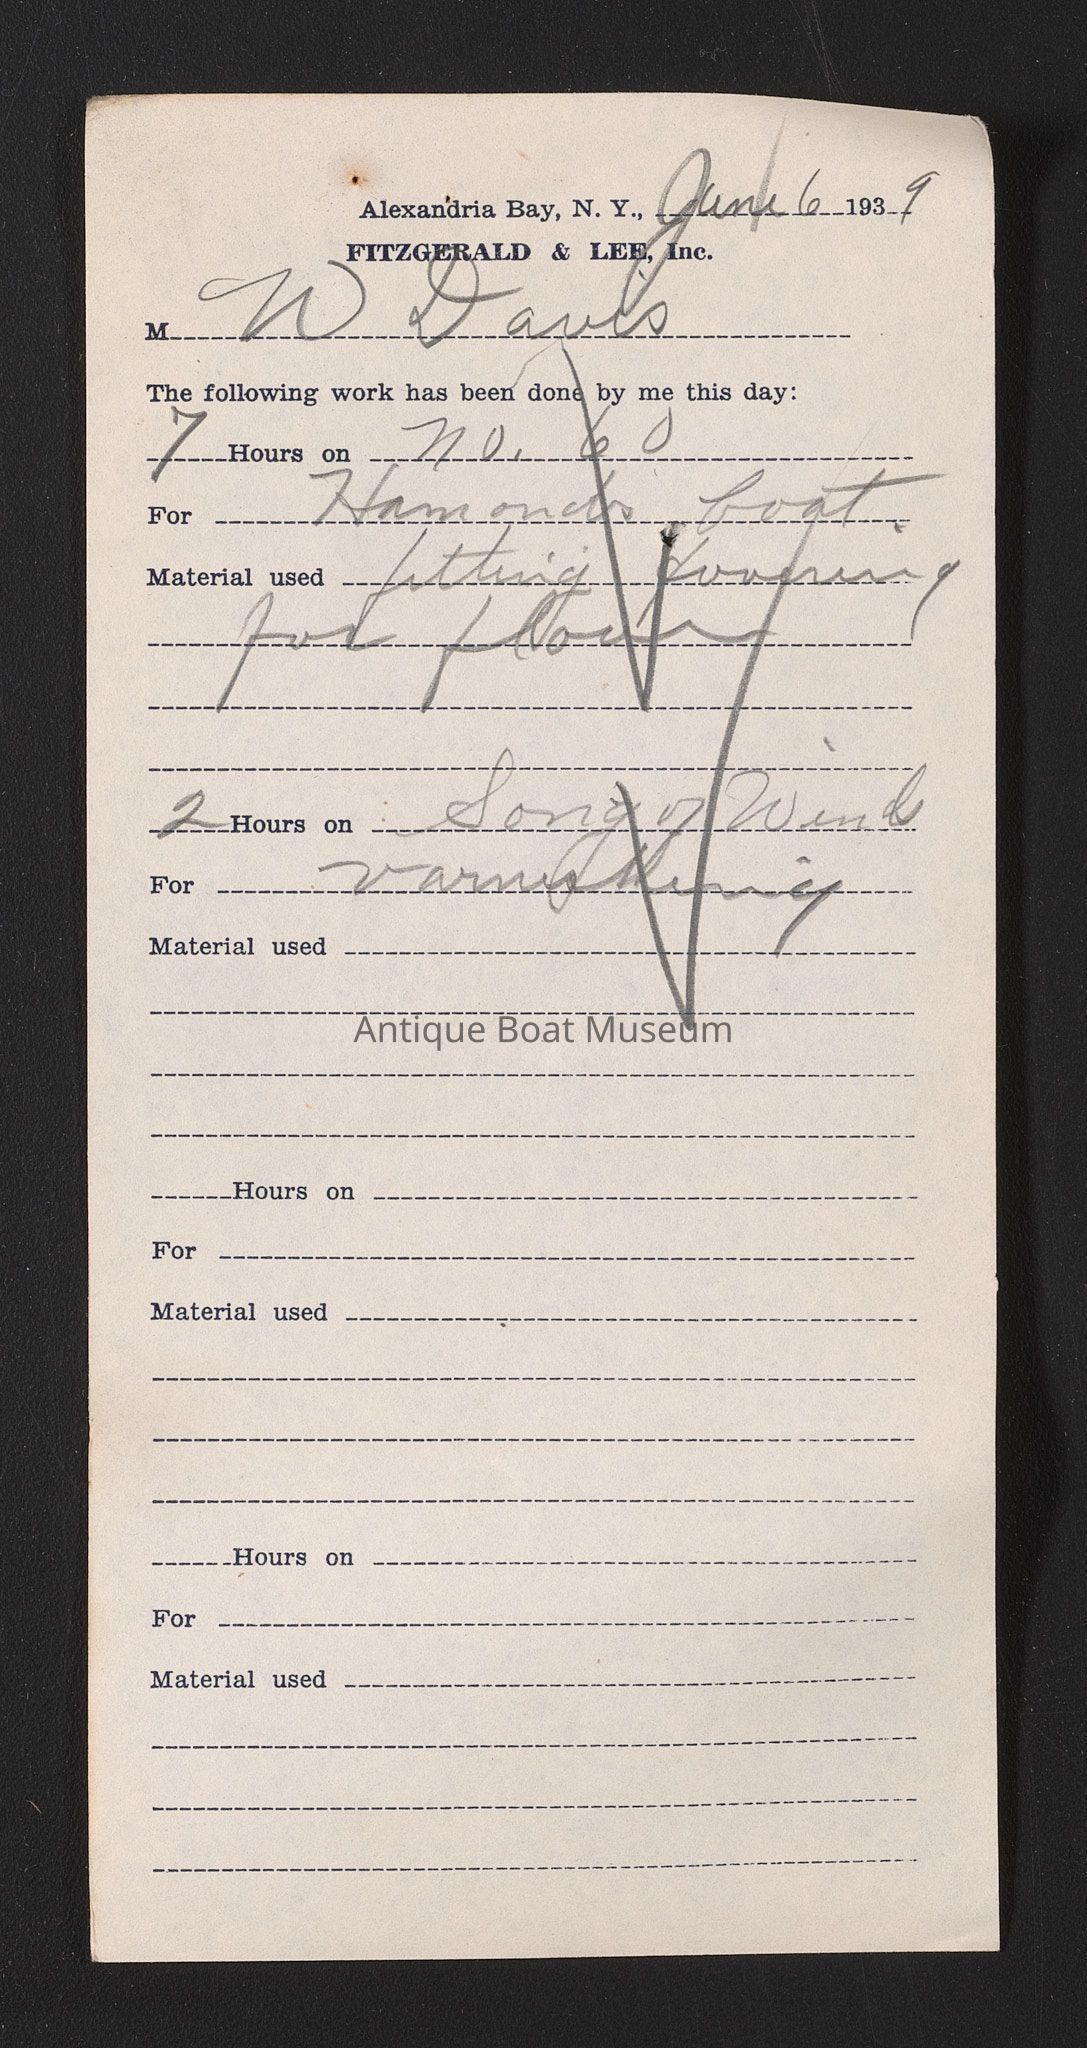 Alexandria Bay, N. Y., June 6 1939
FITZGERALD & LEE, Inc.
M W Davis
The following work has been done by me this day:
7 Hours on no. 60
For Hamonds boat
Material used fitting
for floor
2 Hours on Song of Winds
For varnishing
Material used
Antique Boat Museum
Hours on
For
Material used
Hours on
For
Material used